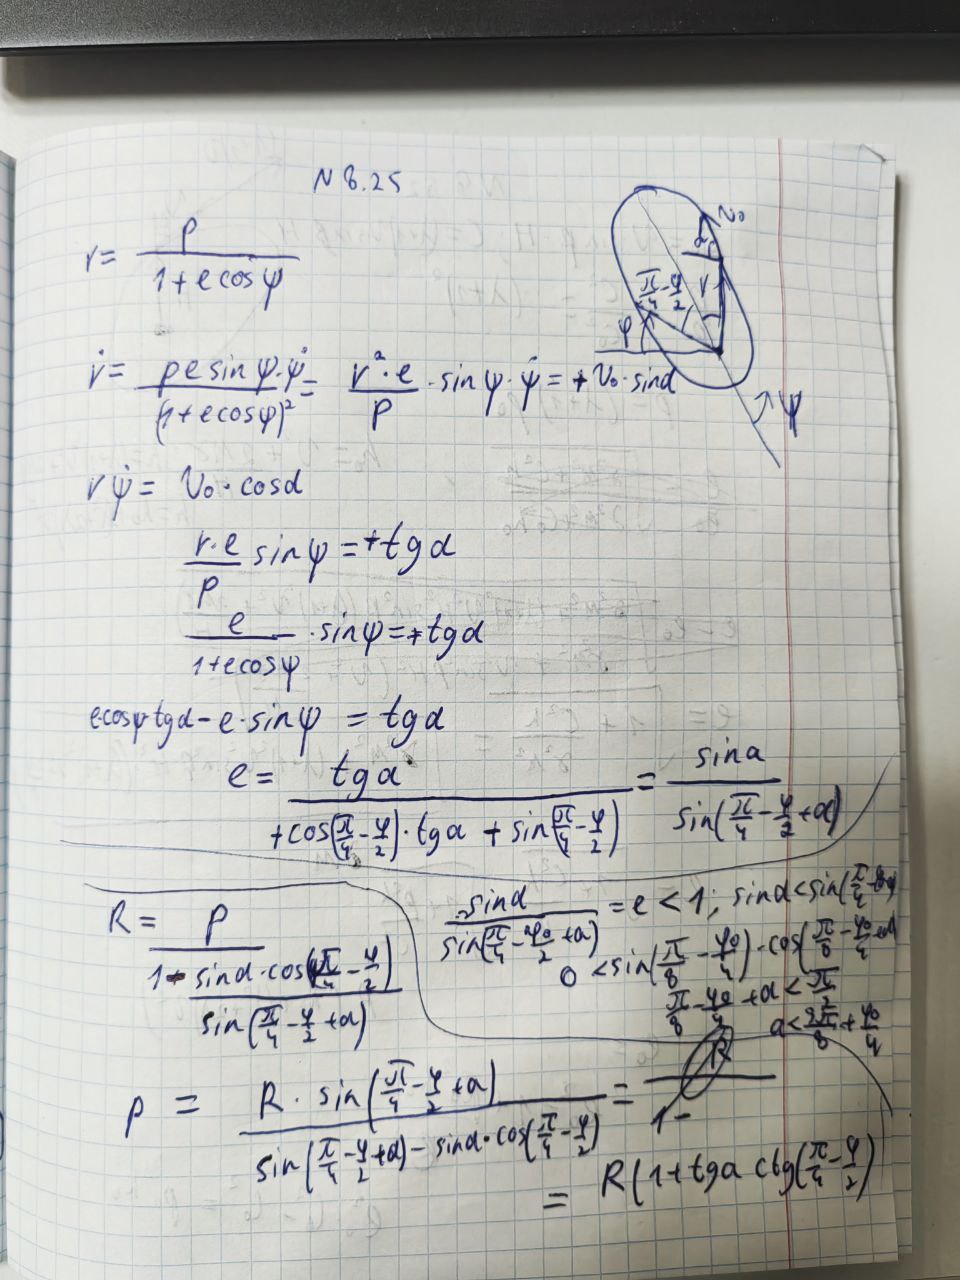 N 8.25
r = p / (1 + e cos ψ)
ṙ = p e sin ψ · ψ̇ / (1 + e cos ψ)² = r² · e / p · sin ψ · ψ̇ = + v₀ · sin α
r ψ̇ = v₀ · cos α
r · e / p sin ψ = + tg α
e / (1 + e cos ψ) · sin ψ = + tg α
e cos ψ · tg α − e · sin ψ = tg α
e = tg α / (+ cos(π/4 − φ/2) · tg α + sin(π/4 − φ/2)) = sin α / sin(π/4 − φ/2 + α)
R = p / (1 − sin α · cos(π/4 − φ/2) / sin(π/4 − φ/2 + α))
sin α / sin(π/4 − φ₀/2 + α) = e < 1; sin α < sin(π/4
0 < sin(π/8 − φ₀/4) · cos(π/8 − φ₀/4 + α)
π/8 − φ₀/4 + α < π/2
α < 3π/8 + φ₀/4
p = R · sin(π/4 − φ/2 + α) / (sin(π/4 − φ/2 + α) − sin α · cos(π/4 − φ/2)) =
R / 1 −
= R(1 + tg α ctg(π/4 − φ/2)
v₀
α
r
π/4 − φ/2
φ
ψ